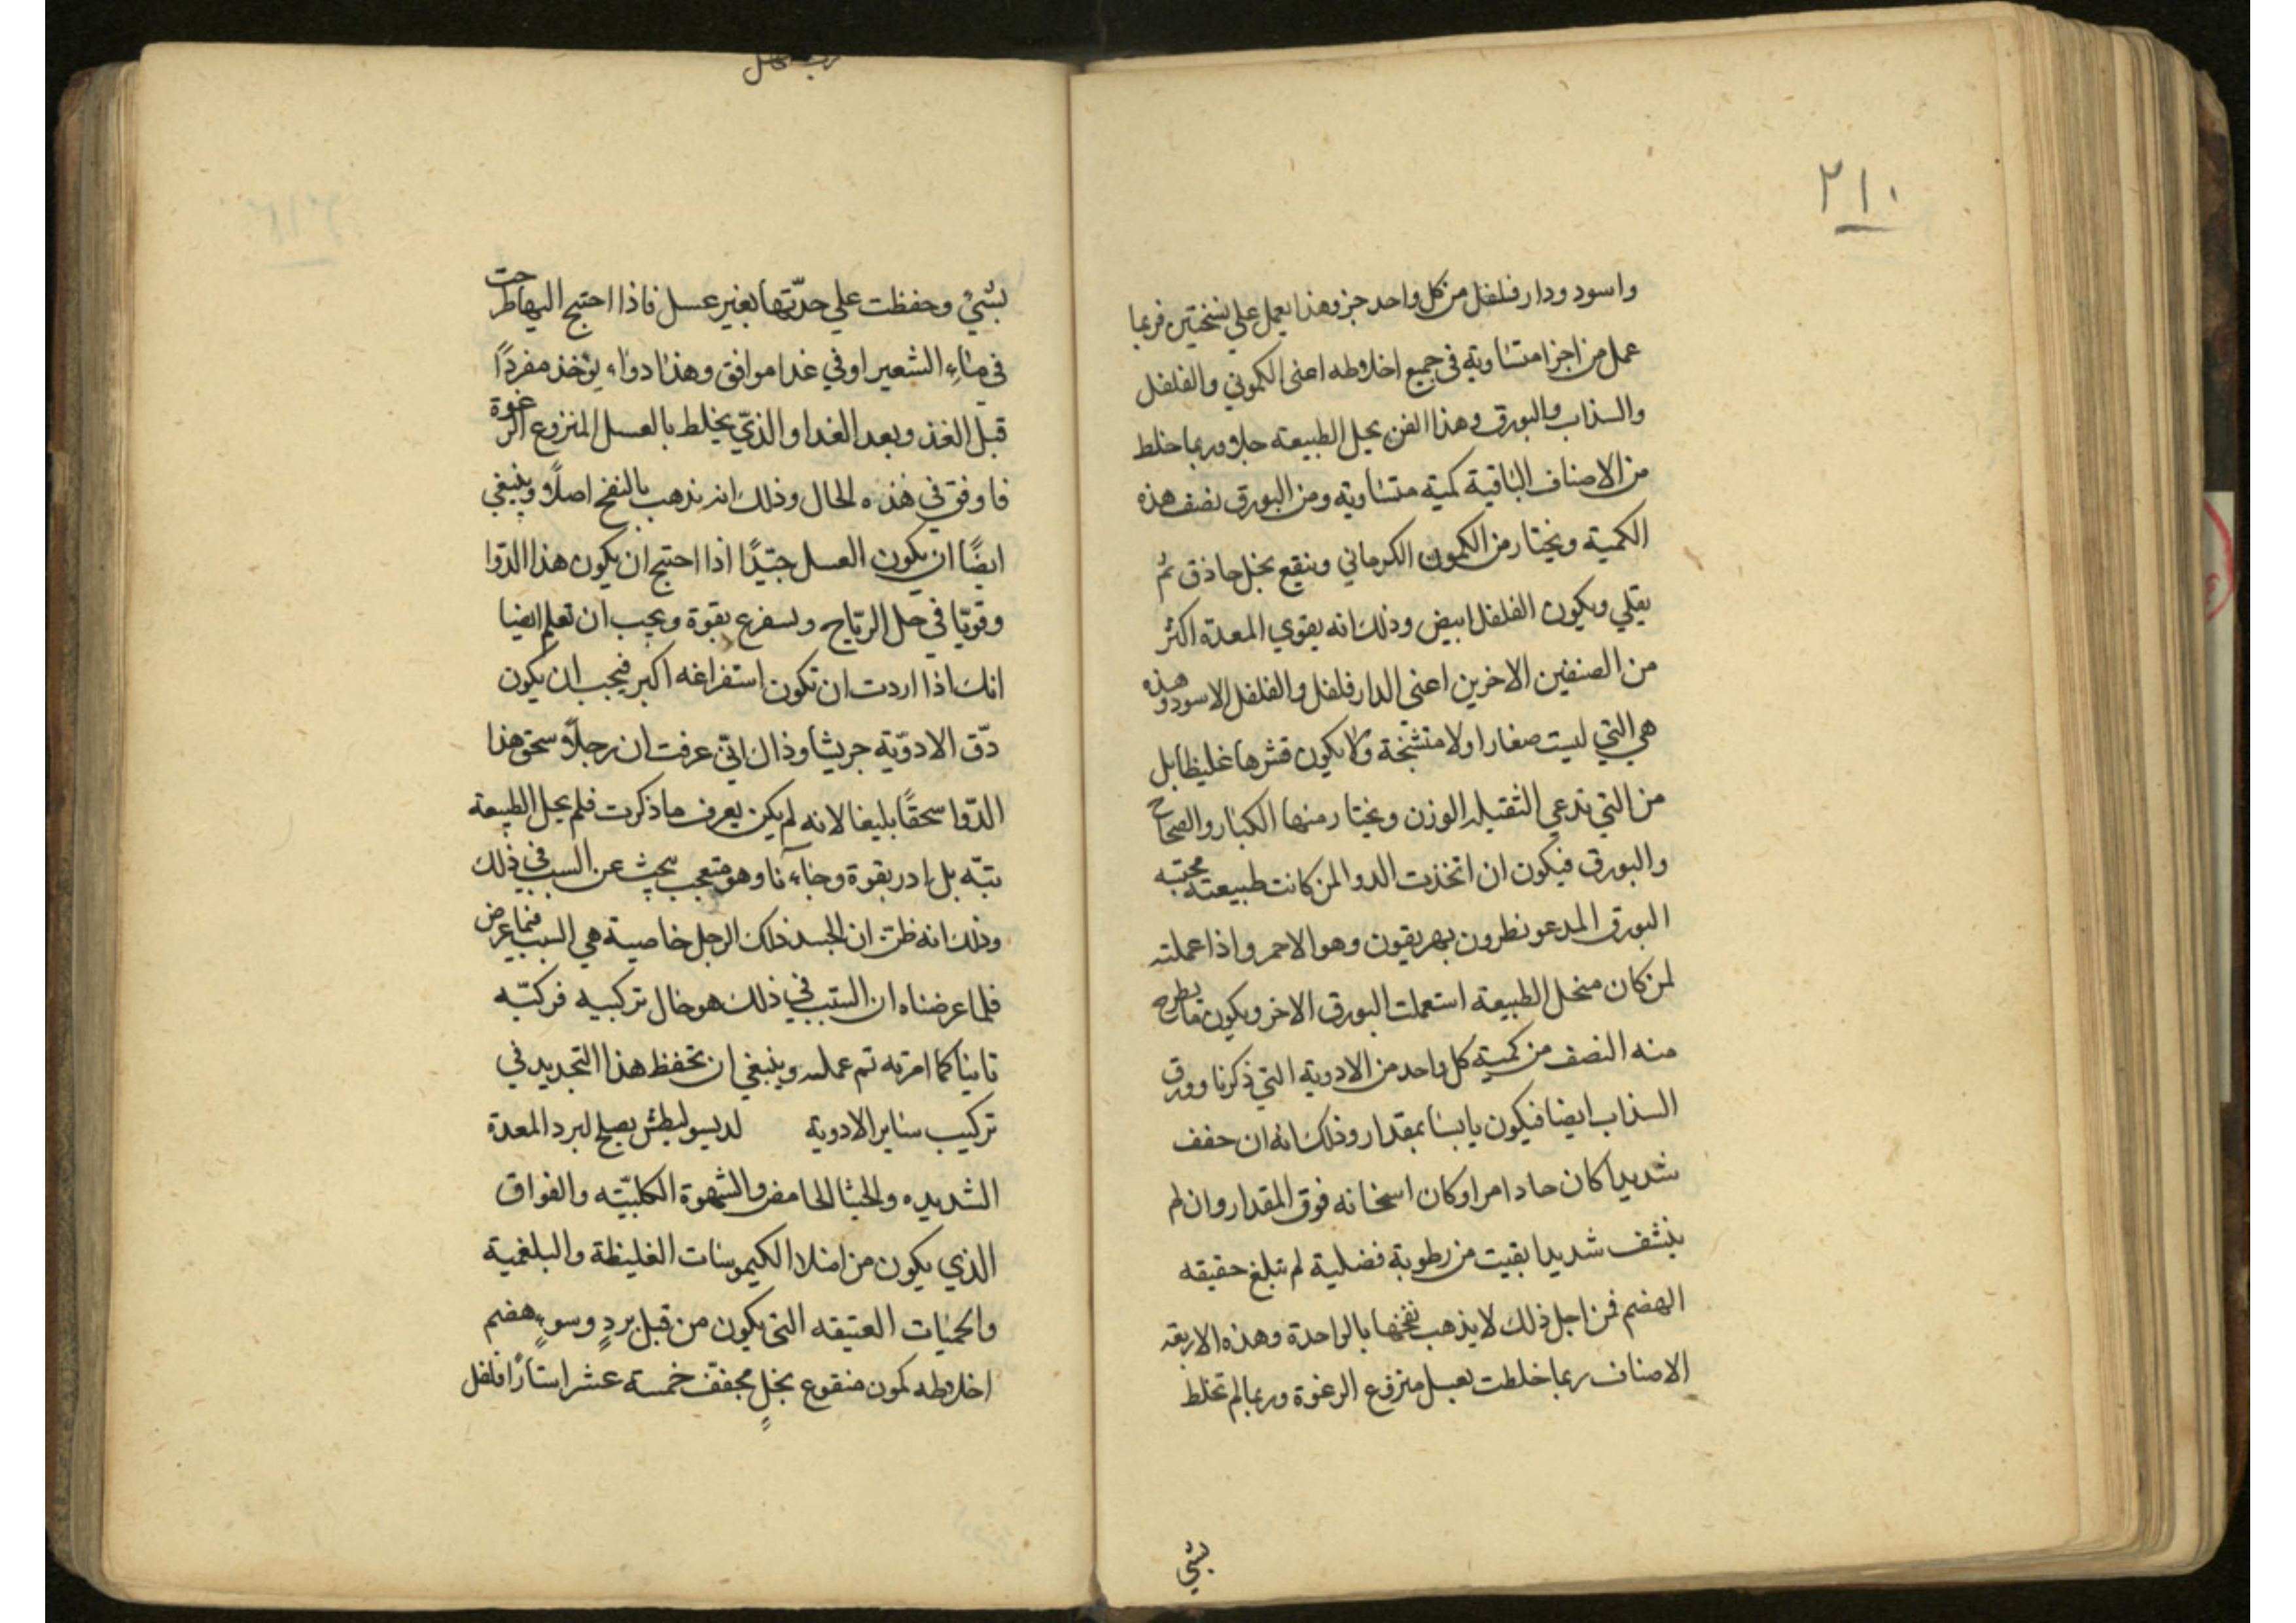 ٢١٠
واسود ودار فلفل من كل واحد جز وهذا يعمل علي نسختين فربما
عمل من اجزا متساوية في جميع اخلاطه اعنى الكموني والفلفل
والسذاب والبورق وهذا الفن يحل الطبيعه حلا وربما خلط
من الاصناف الباقية كمية متساوية ومن البورق نصف هذه
الكمية ويختار من الكمون الكرماني وينقع بخل حاذق ثم
يقلي ويكون الفلفل ابيض وذلك انه يقوي المعدة اكثر
من الصنفين الاخرين اعنى الدار فلفل والفلفل الاسود وهذه
هي التي ليست صغارا ولا متشنجة ولا يكون قشرها غليظا بل
من التي تدعي الثقيله الوزن ويختار منها الكبار والصحاح
والبورق فيكون ان اتخذت الدوا لمن كانت طبيعته محتبسه
البورق المدعو نطرون بهريقون وهو الاحمر واذا عملته
لمن كان منحل الطبيعة استعملت البورق الاخر ويكون ما يطرح
منه النصف من كمية كل واحد من الادوية التي ذكرنا وورق
السذاب ايضا فيكون يابسا بمقدار وذلك انه ان جفف
شديدا كان حادا مرا وكان اسخانه فوق المقدار وان لم
ينشف شديدا بقيت من رطوبة فضلية لم تبلغ حقيقه
الهضم فمن اجل ذلك لا يذهب نفخها بالواحدة وهذه الاربعه
الاصناف ربما خلطت بعسل منزوع الرغوة وربما لم تخلط
بشي
بشيْ وحفظت علي حدّتها بغير عسل فاذا احتيج اليها طرحت
في ماءِ الشعير او في غدا موافق وهذا دواء يؤخذ مفردًا
قبل الغذ وبعد الغدا والذيّ يخلط بالعسل المنزوع الرغوة
فاوفق في هذه الحال وذلك انه يذهب بالنفخ اصلاً وينبغي
ايضًا ان يكون العسل جيّدًا اذا احتيج ان يكون هذا الدّوا
وقويّا في حل الرّياح ويسفرغ بقوة ويجب ان تعلم ايضا
انك اذا اردت ان تكون استفراغه اكبر فيجب ان يكون
دّق الادوّية جريشا وذاك انّي عرفت ان رجلاً سحق هذا
الدّوا سحقًا بليغا لانه لم يكن يعرف ما ذكرت فلم يحل الطبيعة
بتّه بل ادر بقوة وجاءنا وهو متعجب يبحث عن السبب في ذلك
وذلك انه ظن ان لجسد ذلك الرجل خاصية هي السبب فيما عرض
فلما عرضناه ان السّبب في ذلك هو حال تركيبه فركبّه
ثانيا كما امرته تم عمله وينبغي ان تحفظ هذا التجديد في
تركيب ساير الادوية لديسوليطش يصلح لبرد المعدة
الشديده والجشا الحامض والشهوة الكلبيّه والفواق
الذي يكون من امتلا الكيموسات الغليظة والبلغمية
والحميات العتيقه التي يكون من قبل بردٍ وسوءِ هضم
اخلاطه كمون منقوع بخلٍ مجفف خمسة عشر استارًا فلفل